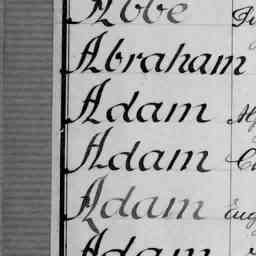 Abbe
Abraham
Adam
Adam
Adam Eug
Adam